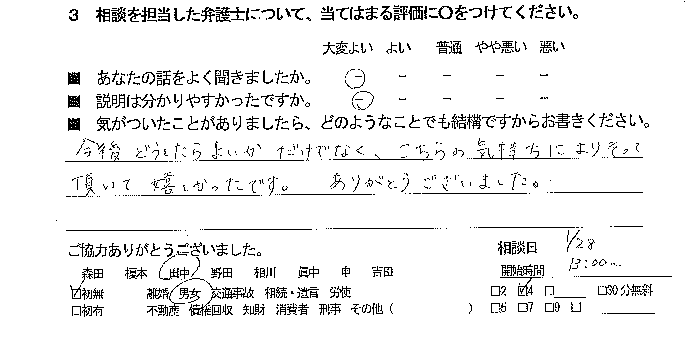 3 相談を担当した弁護士について、当てはまる評価に〇をつけてください。
大変よい よい 普通 やや悪い 悪い
あなたの話をよく聞きましたか。 - - - - -
説明は分かりやすかったですか。 - - - - -
気がついたことがありましたら、どのようなことでも結構ですからお書きください。
今後どうしたらよいかだけでなく、こちらの気持ちによりそって
頂いて嬉しかったです。 ありがとうございました。
ご協力ありがとうございました。 相談日 1/28
森田 榎本 田中 野田 相川 眞中 申 吉田 開始時間 13:00~
☑初無 離婚 男女 交通事故 相続・遺言 労使 □2 ☑4 □ □30分無料
□初有 不動産 債権回収 知財 消費者 刑事 その他( ) □5 □7 □9 □